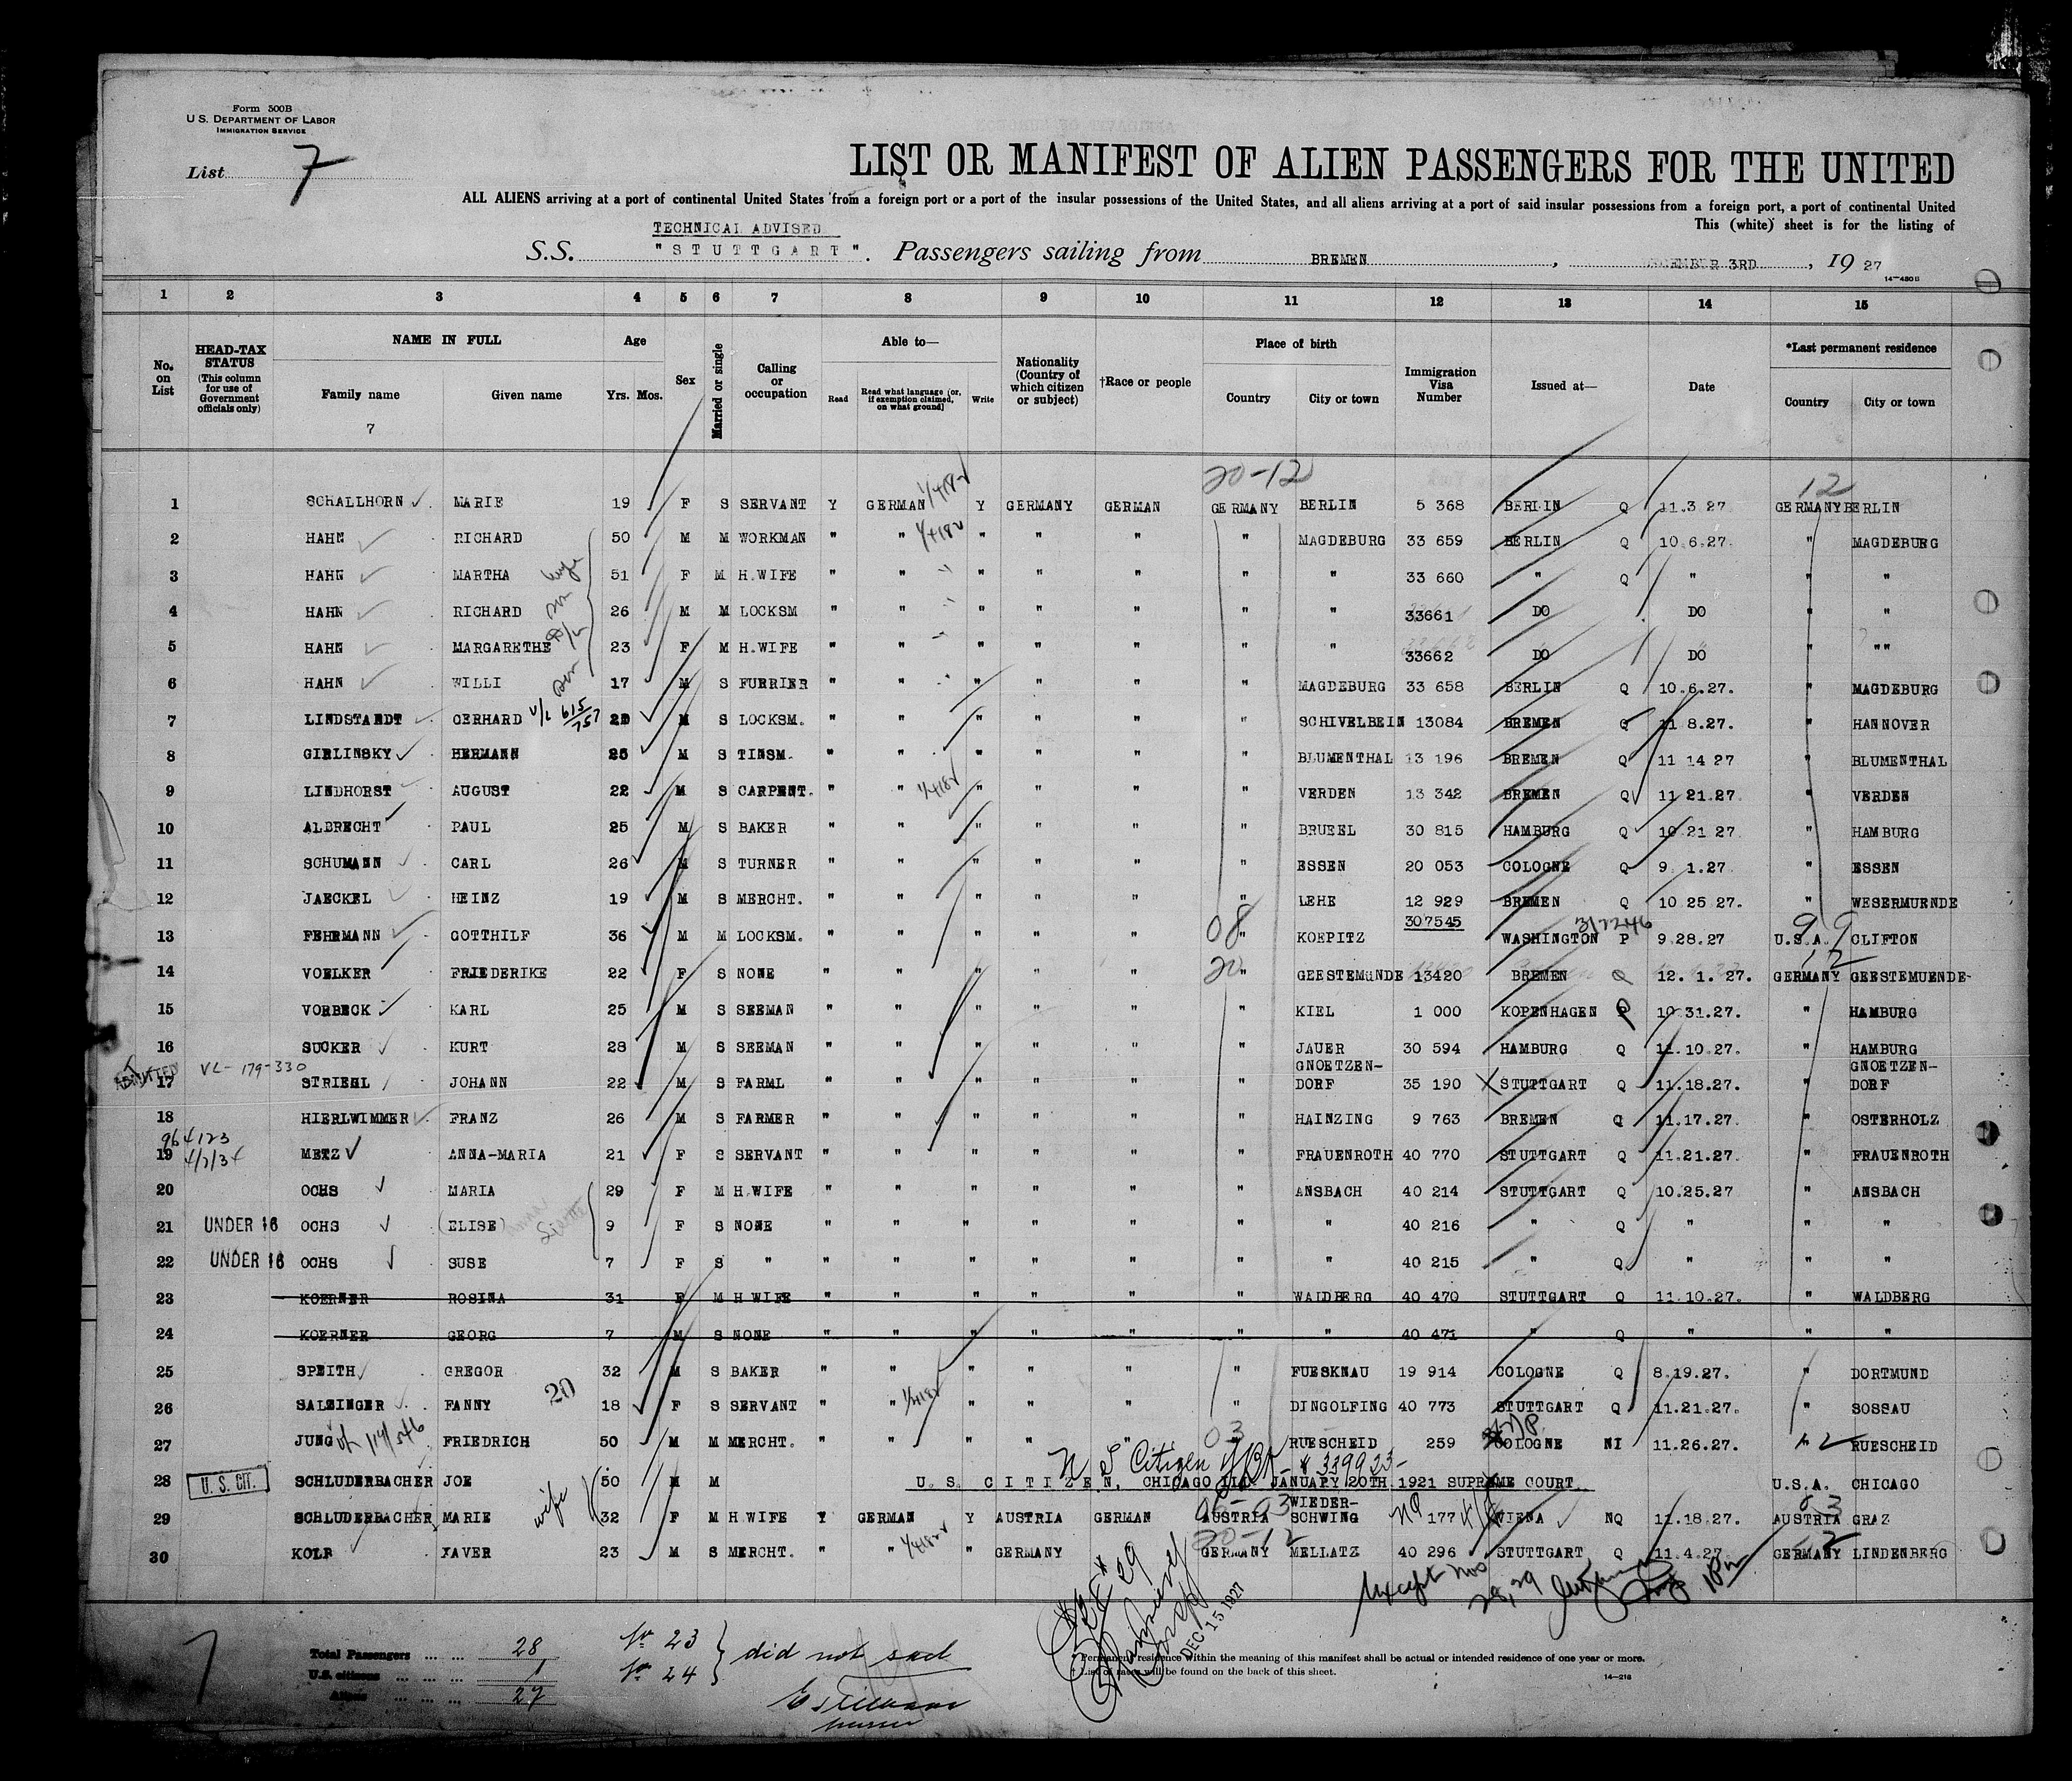 Form 500B
U.S. DEPARTMENT OF LABOR
IMMIGRATION SERVICE
List 7
LIST OR MANIFEST OF ALIEN PASSENGERS FOR THE UNITED
ALL ALIENS arriving at a port of continental United States from a foreign port or a port of the insular possessions of the United States, and all aliens arriving at a port of said insular possessions from a foreign port, a port of continental United
This (white) sheet is for the listing of
TECHNICAL ADVISED
S.S. "STUTTGART". Passengers sailing from BREMEN, 3RD, 19 27
14—480B
1 2 3 4 5 6 7 8 9 10 11 12 13 14 15
No. on List
HEAD-TAX STATUS (This column for use of Government officials only)
NAME IN FULL
Family name
Given name
7
Age
Yrs. Mos.
Sex
Married or single
Calling or occupation
Able to—
Read
Read what language (or, if exemption claimed, on what ground)
Write
Nationality (Country of which citizen or subject)
†Race or people
Place of birth
Country
City or town
Immigration Visa Number
Issued at—
Date
*Last permanent residence
Country
City or town
20-12 12
1 SCHALLHORN MARIE 19 F S SERVANT Y GERMAN Y GERMANY GERMAN GERMANY BERLIN 5 368 BERLIN Q 11.3 27 GERMANY BERLIN
2 HAHN RICHARD 50 M M WORKMAN " " " " " " MAGDEBURG 33 659 BERLIN Q 10.6.27. " MAGDEBURG
3 HAHN MARTHA wife 51 F M H.WIFE " " " " " " " 33 660 " Q " " "
4 HAHN RICHARD son 26 M M LOCKSM " " " " " " " 33661 DO DO " "
5 HAHN MARGARETHE 23 F M H.WIFE " " " " " " " 33662 DO DO " ""
6 HAHN WILLI son 17 M S FURRIER " " " " " " MAGDEBURG 33 658 BERLIN Q 10.6.27. " MAGDEBURG
7 LINDSTANDT GERHARD V/L 615/757 M S LOCKSM. " " " " " " SCHIVELBEIN 13084 BREMEN Q 11 8.27. " HANNOVER
8 GIRLINSKY HERMANN 25 M S TINSM. " " " " " " BLUMENTHAL 13 196 BREMEN Q 11 14 27 " BLUMENTHAL
9 LINDHORST AUGUST 22 M S CARPENT. " " " " " " VERDEN 13 342 BREMEN Q 11 21.27. " VERDEN
10 ALBRECHT PAUL 25 M S BAKER " " " " " " BRUEEL 30 815 HAMBURG Q 10.21 27 " HAMBURG
11 SCHUMANN CARL 26 M S TURNER " " " " " " ESSEN 20 053 COLOGNE Q 9. 1.27. " ESSEN
12 JAECKEL HEINZ 19 M S MERCHT. " " " " " " LEHE 12 929 BREMEN Q 10 25 27. " WESERMUENDE
13 FEHRMANN GOTTHILF 36 M M LOCKSM. " " " " " 08 " KOEPITZ 307545 WASHINGTON P 9.28.27 U.S.A. CLIFTON
14 VOELKER FRIEDERIKE 22 F S NONE " " " " " 20 " GEESTEMüNDE 13420 BREMEN Q 12. 1. 27. GERMANY GEESTEMUENDE
15 VORBECK KARL 25 M S SEEMAN " " " " " " KIEL 1 000 KOPENHAGEN 10.31.27. " HAMBURG
16 SUCKER KURT 28 M S SEEMAN " " " " " " JAUER 30 594 HAMBURG Q 11.10.27. " HAMBURG
ADMITTED VL-179-330 GNOETZEN- GNOETZEN-
17 STRIEGL JOHANN 22 M S FARML " " " " " " DORF 35 190 STUTTGART Q 11.18.27. " DORF
18 HIERLWIMMER FRANZ 26 M S FARMER " " " " " " HAINZING 9 763 BREMEN Q 11.17.27. " OSTERHOLZ
19 METZ ANNA-MARIA 21 F S SERVANT " " " " " " FRAUENROTH 40 770 STUTTGART Q 11.21.27. " FRAUENROTH
20 OCHS MARIA 29 F M H.WIFE " " " " " " ANSBACH 40 214 STUTTGART Q 10.25.27 " ANSBACH
21 UNDER 16 OCHS (ELISE) 9 F S NONE " " " " " " " 40 216 " Q " " "
22 UNDER 16 OCHS SUSE 7 F S " " " " " " " " 40 215 " Q " " "
23 KOERNER ROSINA 31 F M H WIFE " " " " " " WALDBERG 40 470 STUTTGART Q 11.10.27. " WALDBERG
24 KOERNER GEORG 7 M S NONE " " " " " " " 40 471 " Q " " "
25 SPEITH GREGOR 32 M S BAKER " " " " " " FUESKNAU 19 914 COLOGNE Q 8.19.27. " DORTMUND
26 SALZINGER FANNY 20 18 F S SERVANT " " " " " " DINGOLFING 40 773 STUTTGART Q 11.21.27. " SOSSAU
27 JUNG FRIEDRICH 50 M M MERCHT. " " " " " 03 RUESCHEID 259 COLOGNE NI 11.26.27. " RUESCHEID
28 U. S. CIT. SCHLUDERBACHER JOE 50 M M U.S. CITIZEN, CHICAGO ILL. JANUARY 20TH 1921 SUPREME COURT U.S.A. CHICAGO
WIEDER-
29 SCHLUDERBACHER MARIE wife 32 F M H WIFE Y GERMAN Y AUSTRIA GERMAN AUSTRIA SCHWING 177 VIENA NQ 11.18.27. AUSTRIA GRAZ
30 KOLB XAVER 23 M S MERCHT. " " " GERMANY GERMANY MELLATZ 40 296 STUTTGART Q 11.4.27. GERMANY LINDENBERG
Except Nos 28, 29
DEC 15 1927
Total Passengers 28
U.S. citizens 1
Aliens 27
No 23
No 24
did not sail
7
* Permanent residence within the meaning of this manifest shall be actual or intended residence of one year or more.
† List of races will be found on the back of this sheet.
14—218